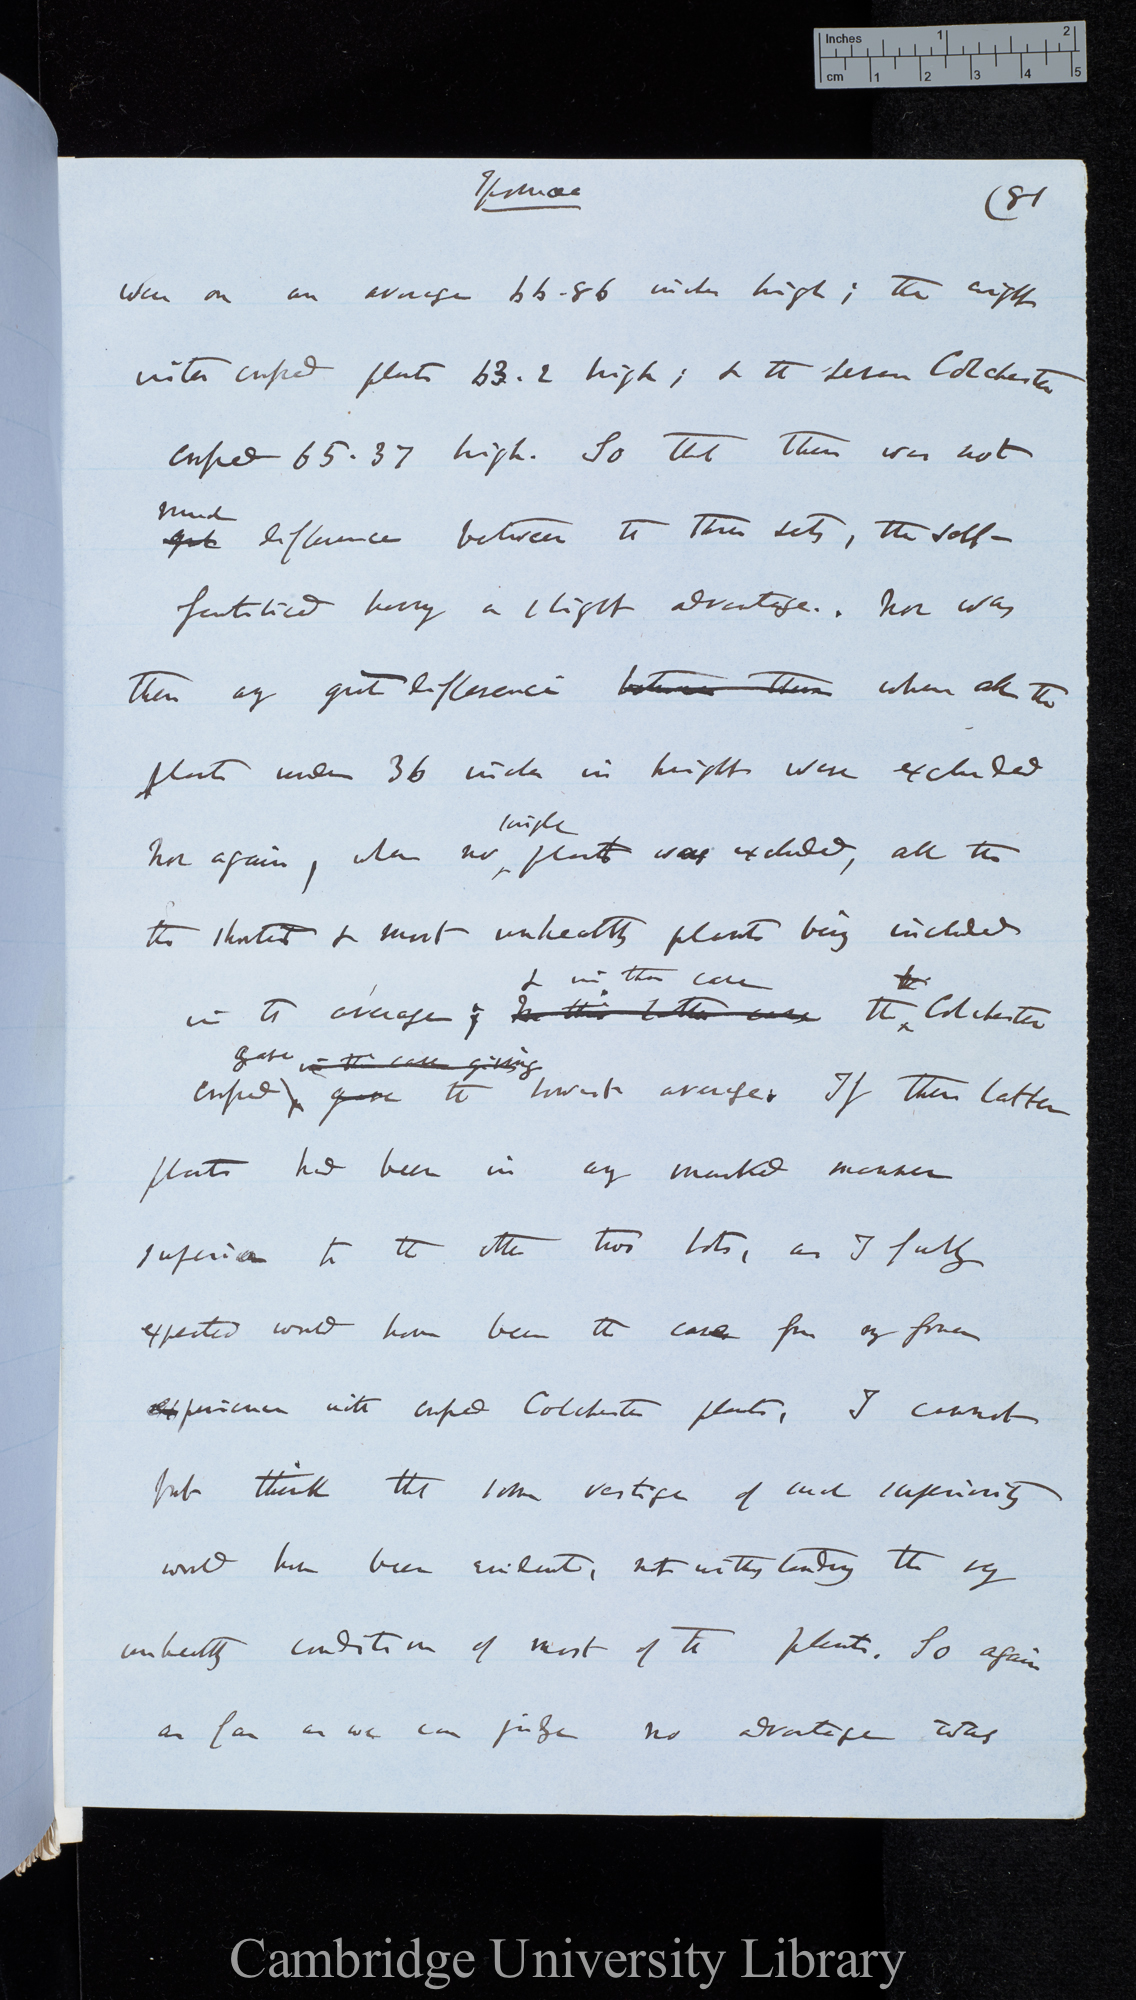 Inches 1 2
cm 1 2 3 4 5
Ipomoea (81
were on an average 66.86 inches high; the eight
inter crossed plants 63.2 high; & the seven Colchester
crossed 65.37 high. So that there was not
much
great difference between the three sets, the self-
fertilised having a slight advantage. Nor was
there any great difference between them when all the
plants under 36 inches in height were excluded
single
Nor again, when no plant was excluded, all the
the shortest & most unhealthy plants being included
& in this case
in the average; In this latter case the Colchester
gave in this case giving
crossed gave the lowest average. If these latter
plants had been in any marked manner
superior to the other two lots, as I fully
expected would have been the case from my former
experience with crossed Colchester plants, I cannot
but think that some vestige of such superiority
would have been evident, notwithstanding the very
unhealthy condition of most of the plants. So again
as far as we can judge no advantage was
Cambridge University Library